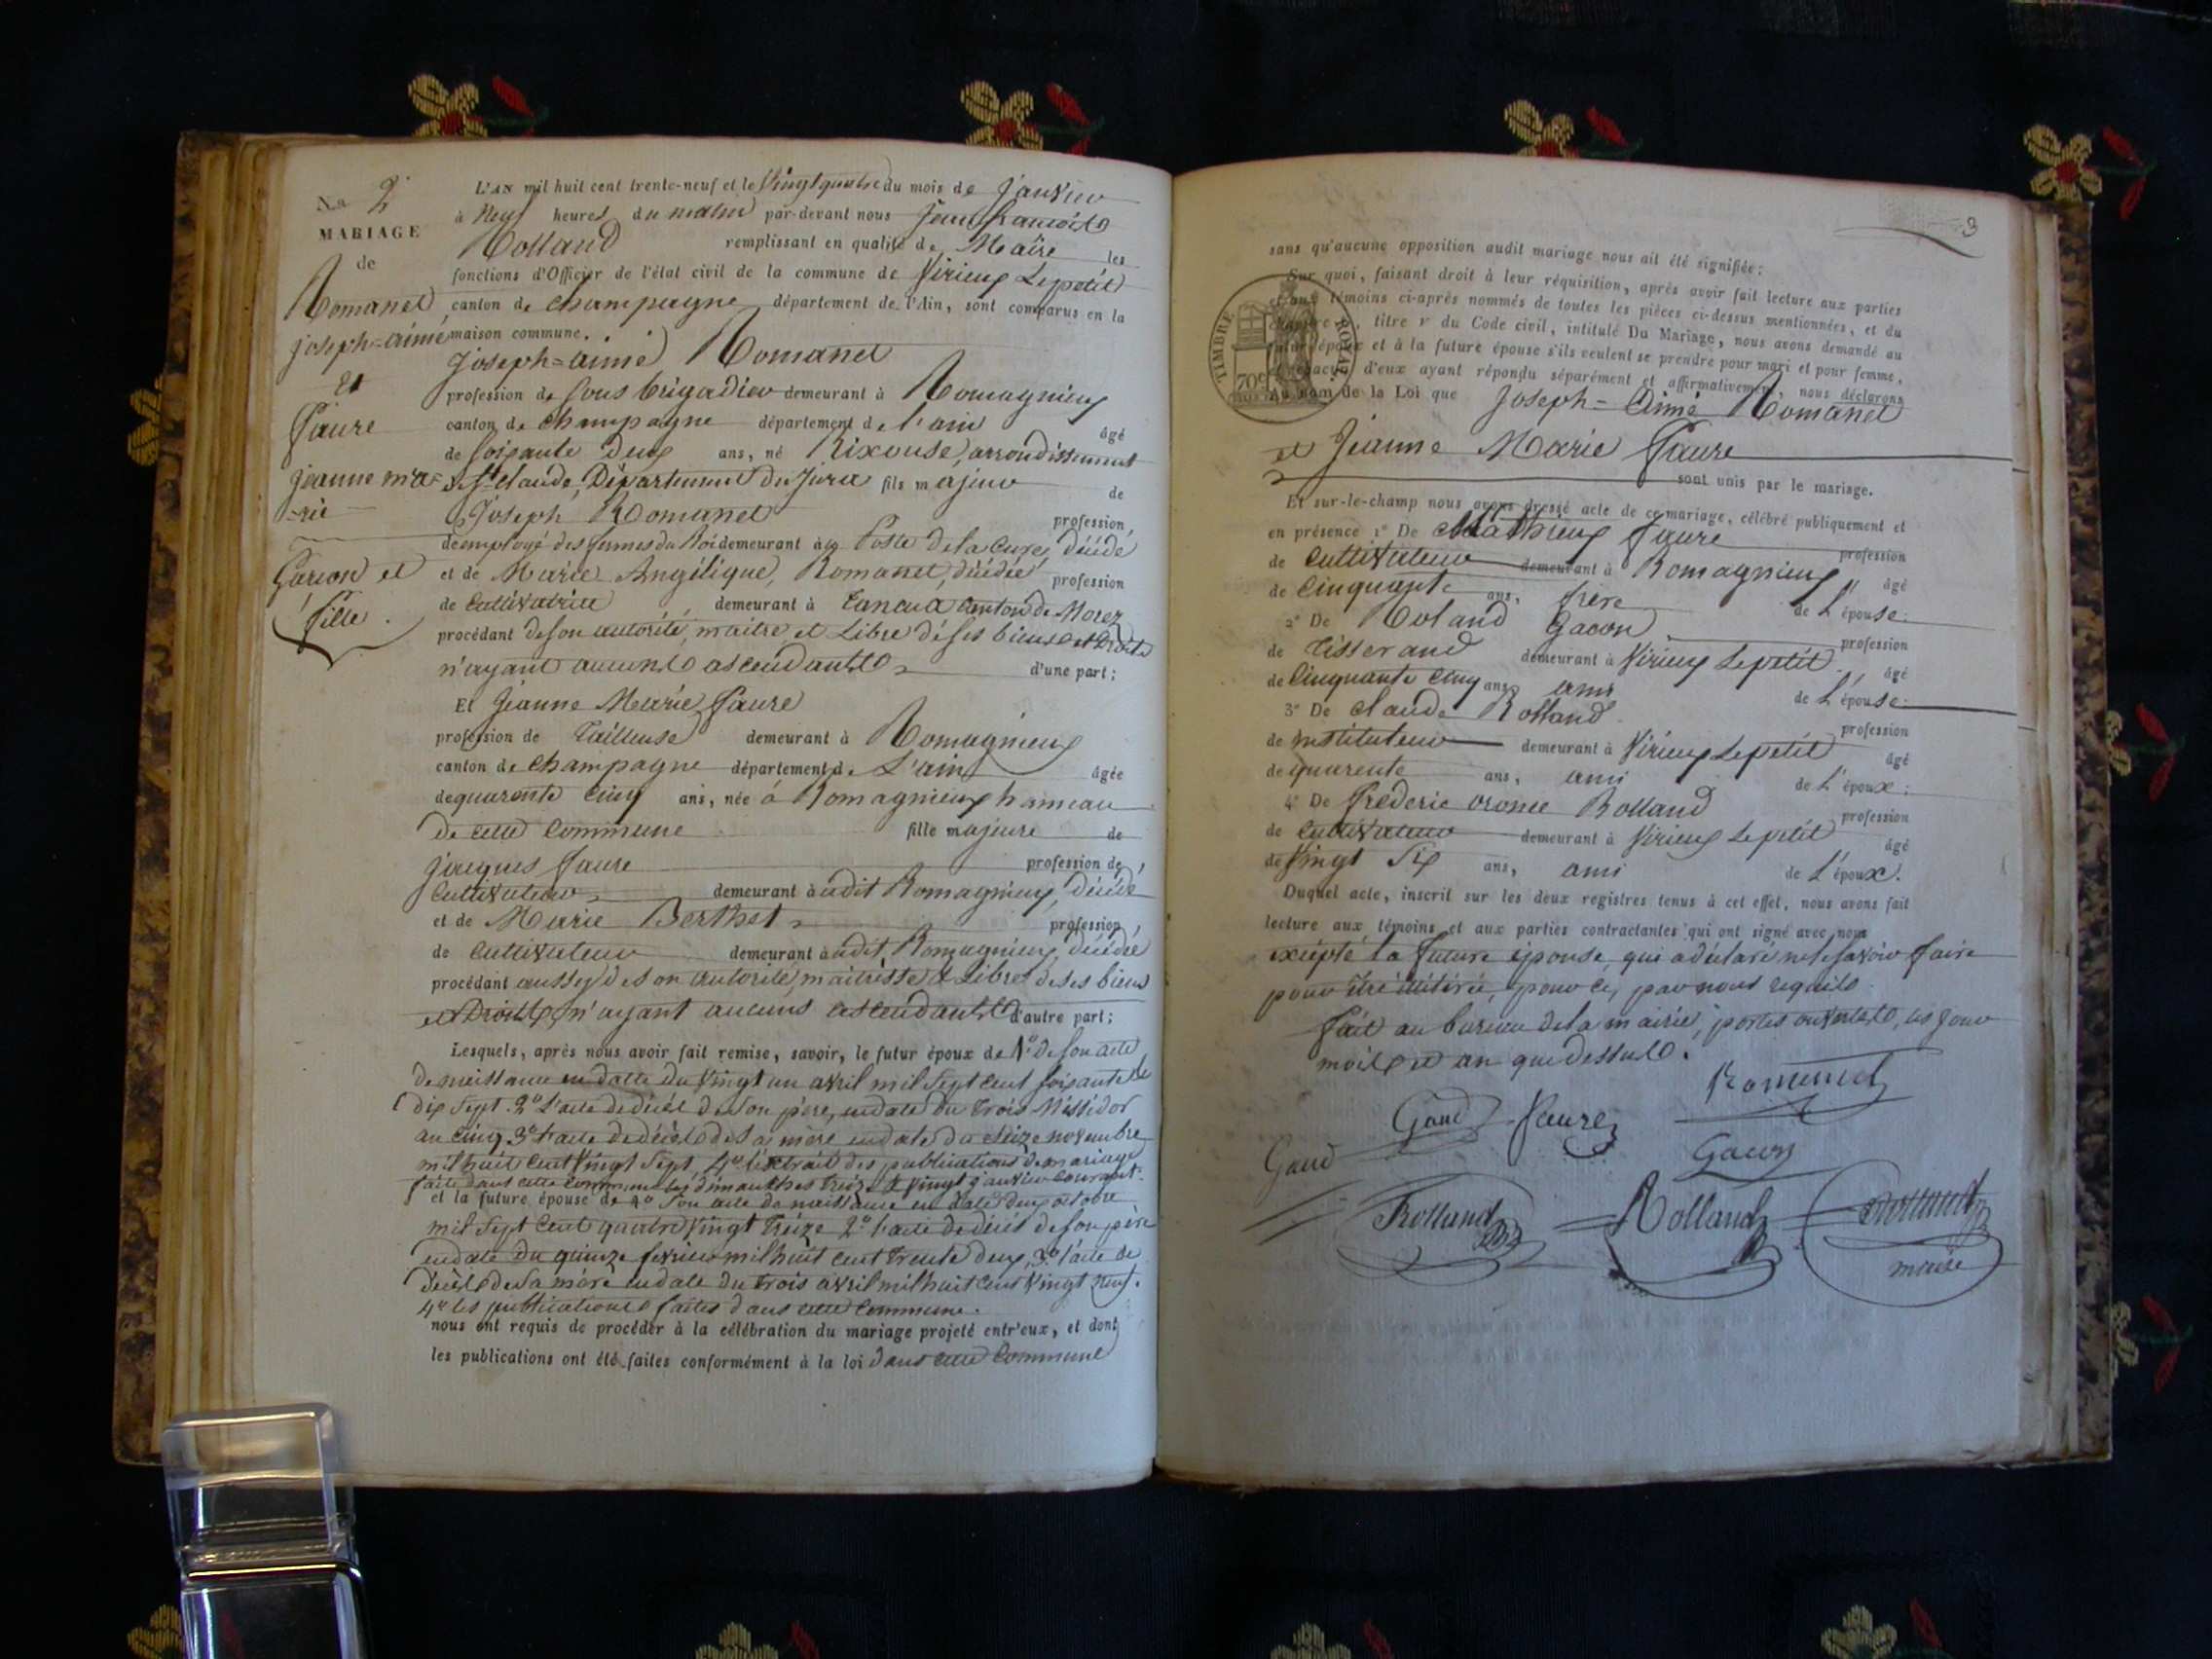 No 2
MARIAGE
de
Romanet
joseph=aimé
et
Faure
jeanne ma=
=rie
Garcon et
fille.
L'AN mil huit cent trente-neuf et le Vingt quatre du mois de janvier
à Neuf heures du matin par-devant nous jean francois
Rolland remplissant en qualité de Maire les
fonctions d'Officier de l'état civil de la commune de Virieux Lepetit
canton de champagne département de l'Ain, sont comparus en la
maison commune.
joseph=aimé Romanet
profession de sous brigadier demeurant à Romagnieux
canton de champagne département de l'ain âgé
de soixante deux ans, né Rixouse, arrondissement
de St Claude, Département du Jura fils majeur de
Joseph Romanet profession
de employé des fermes du Roi demeurant à Poste de la Cure, décédé
et de Marie Angélique, Romanet, décédée profession
de cultivatrice demeurant à Tancua canton de Morez
procédant de son autorité, maitre et Libre de ses biens et Droits
n'ayant aucuns ascendants d'une part;
Et Jeanne Marie Faure
profession de Tailleuse demeurant à Romagnieux
canton de champagne département de L'ain âgée
de quarante cinq ans, née à Romagnieux hameau
de cette Commune fille majeure de
jacques Faure profession de
cultivateur demeurant à udit Romagnieux, décédé
et de Marie Berthet profession
de cultivateur demeurant à udit Romagnieux, décédée
procédant aussy de son autorité, maitresse & Libre de ses biens
et Droits, n'ayant aucuns ascendants d'autre part;
Lesquels, après nous avoir fait remise, savoir, le futur époux de 1º de son acte
de naissance en datte du Vingt un avril mil sept cent soixante &
dix sept. 2º L'acte de décès de son père, en date du trois Messidor
an cinq. 3º l'acte de décès de sa mère en date du seize novembre
mil huit cent Vingt Sept, 4º l'extrait des publications de mariage
faite dans cette Commune les dimanches treize & Vingt janvier courant.
et la future épouse de 1º Son acte de naissance en date deux octobre
mil sept cent quatre Vingt treize 2º l'acte de décès de son père
en date du quinze fevrier mil huit cent trente deux, 3º l'acte de
décès de sa mère en date du trois avril mil huit cent Vingt Neuf.
4º les publications faites dans cette Commune.
nous ont requis de procéder à la célébration du mariage projeté entr'eux, et dont
les publications ont été faites conformément à la loi dans cette Commune
3
sans qu'aucune opposition audit mariage nous ait été signifiée;
Sur quoi, faisant droit à leur réquisition, après avoir fait lecture aux parties
et aux témoins ci-après nommés de toutes les pièces ci-dessus mentionnées, et du
chapitre , titre v du Code civil, intitulé Du Mariage, nous avons demandé au
futur époux et à la future épouse s'ils veulent se prendre pour mari et pour femme,
et chacun d'eux ayant répondu séparément et affirmativement, nous déclarons
au nom de la Loi que Joseph=Aimé Romanet
TIMBRE ROYAL
70c
et Jeanne Marie Faure
sont unis par le mariage.
Et sur-le-champ nous avons dressé acte de ce mariage, célébré publiquement et
en présence 1º De Mathieux Faure profession
de cultivateur demeurant à Romagnieux âgé
de Cinquante ans, frère de L'épouse:
2º De Roland Gacon profession
de tisserand demeurant à Virieux Lepetit âgé
de Cinquante cinq ans, ami de L'épouse:
3º De claude Rolland profession
de instituteur demeurant à Virieux Lepetit âgé
de quarente ans, ami de L'époux:
4º De frederic Rolland profession
de cultivateur demeurant à Virieux Lepetit âgé
de Vingt six ans, ami de L'époux.
Duquel acte, inscrit sur les deux registres tenus à cet effet, nous avons fait
lecture aux témoins et aux parties contractantes qui ont signé avec nous
excépté la future épouse, qui a déclaré ne le savoir faire
pour être illitérée, pour ce, par nous requis.
fait au bureau de la mairie, portes ouvertes, les jour
mois et an que dessus.
Romanet
Gaud Faure
Gaud
Gacon
Rolland Rolland Rolland
maire